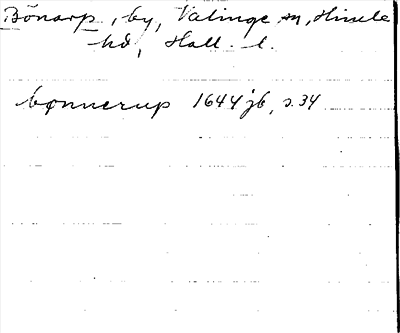 Bönarp, by, Valinge sn, Himle
hd, Hall. l.
bønnerup 1644 jb, s. 34